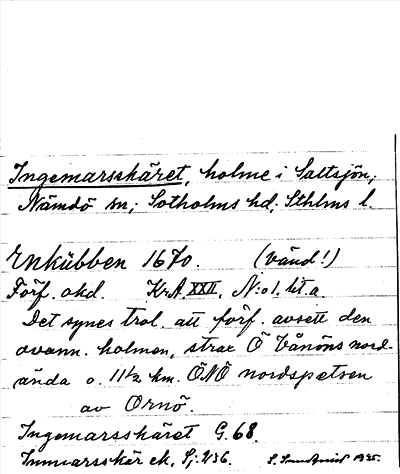 Ingemarsskäret, holme i Saltsjön,
Nämdö sn; Sotholms hd, Sthlms l.
Enkübben 1670. (vänd!)
Förf. okd. Kr.A. XXII, N:o 1. lit. a.
Det synes trol. att förf. avsett den
ovann. holmen, strax Ö Vånöns nord-
ända o. 11½ km. ÖNÖ nordspetsen
av Ornö.
Ingemarsskäret G. 68.
Immarsskär ek.
1935.